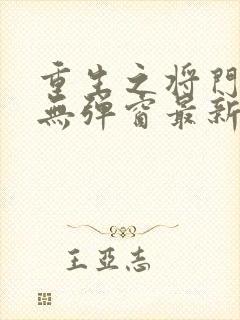 重生之将門
無彈窗最新
王亞志